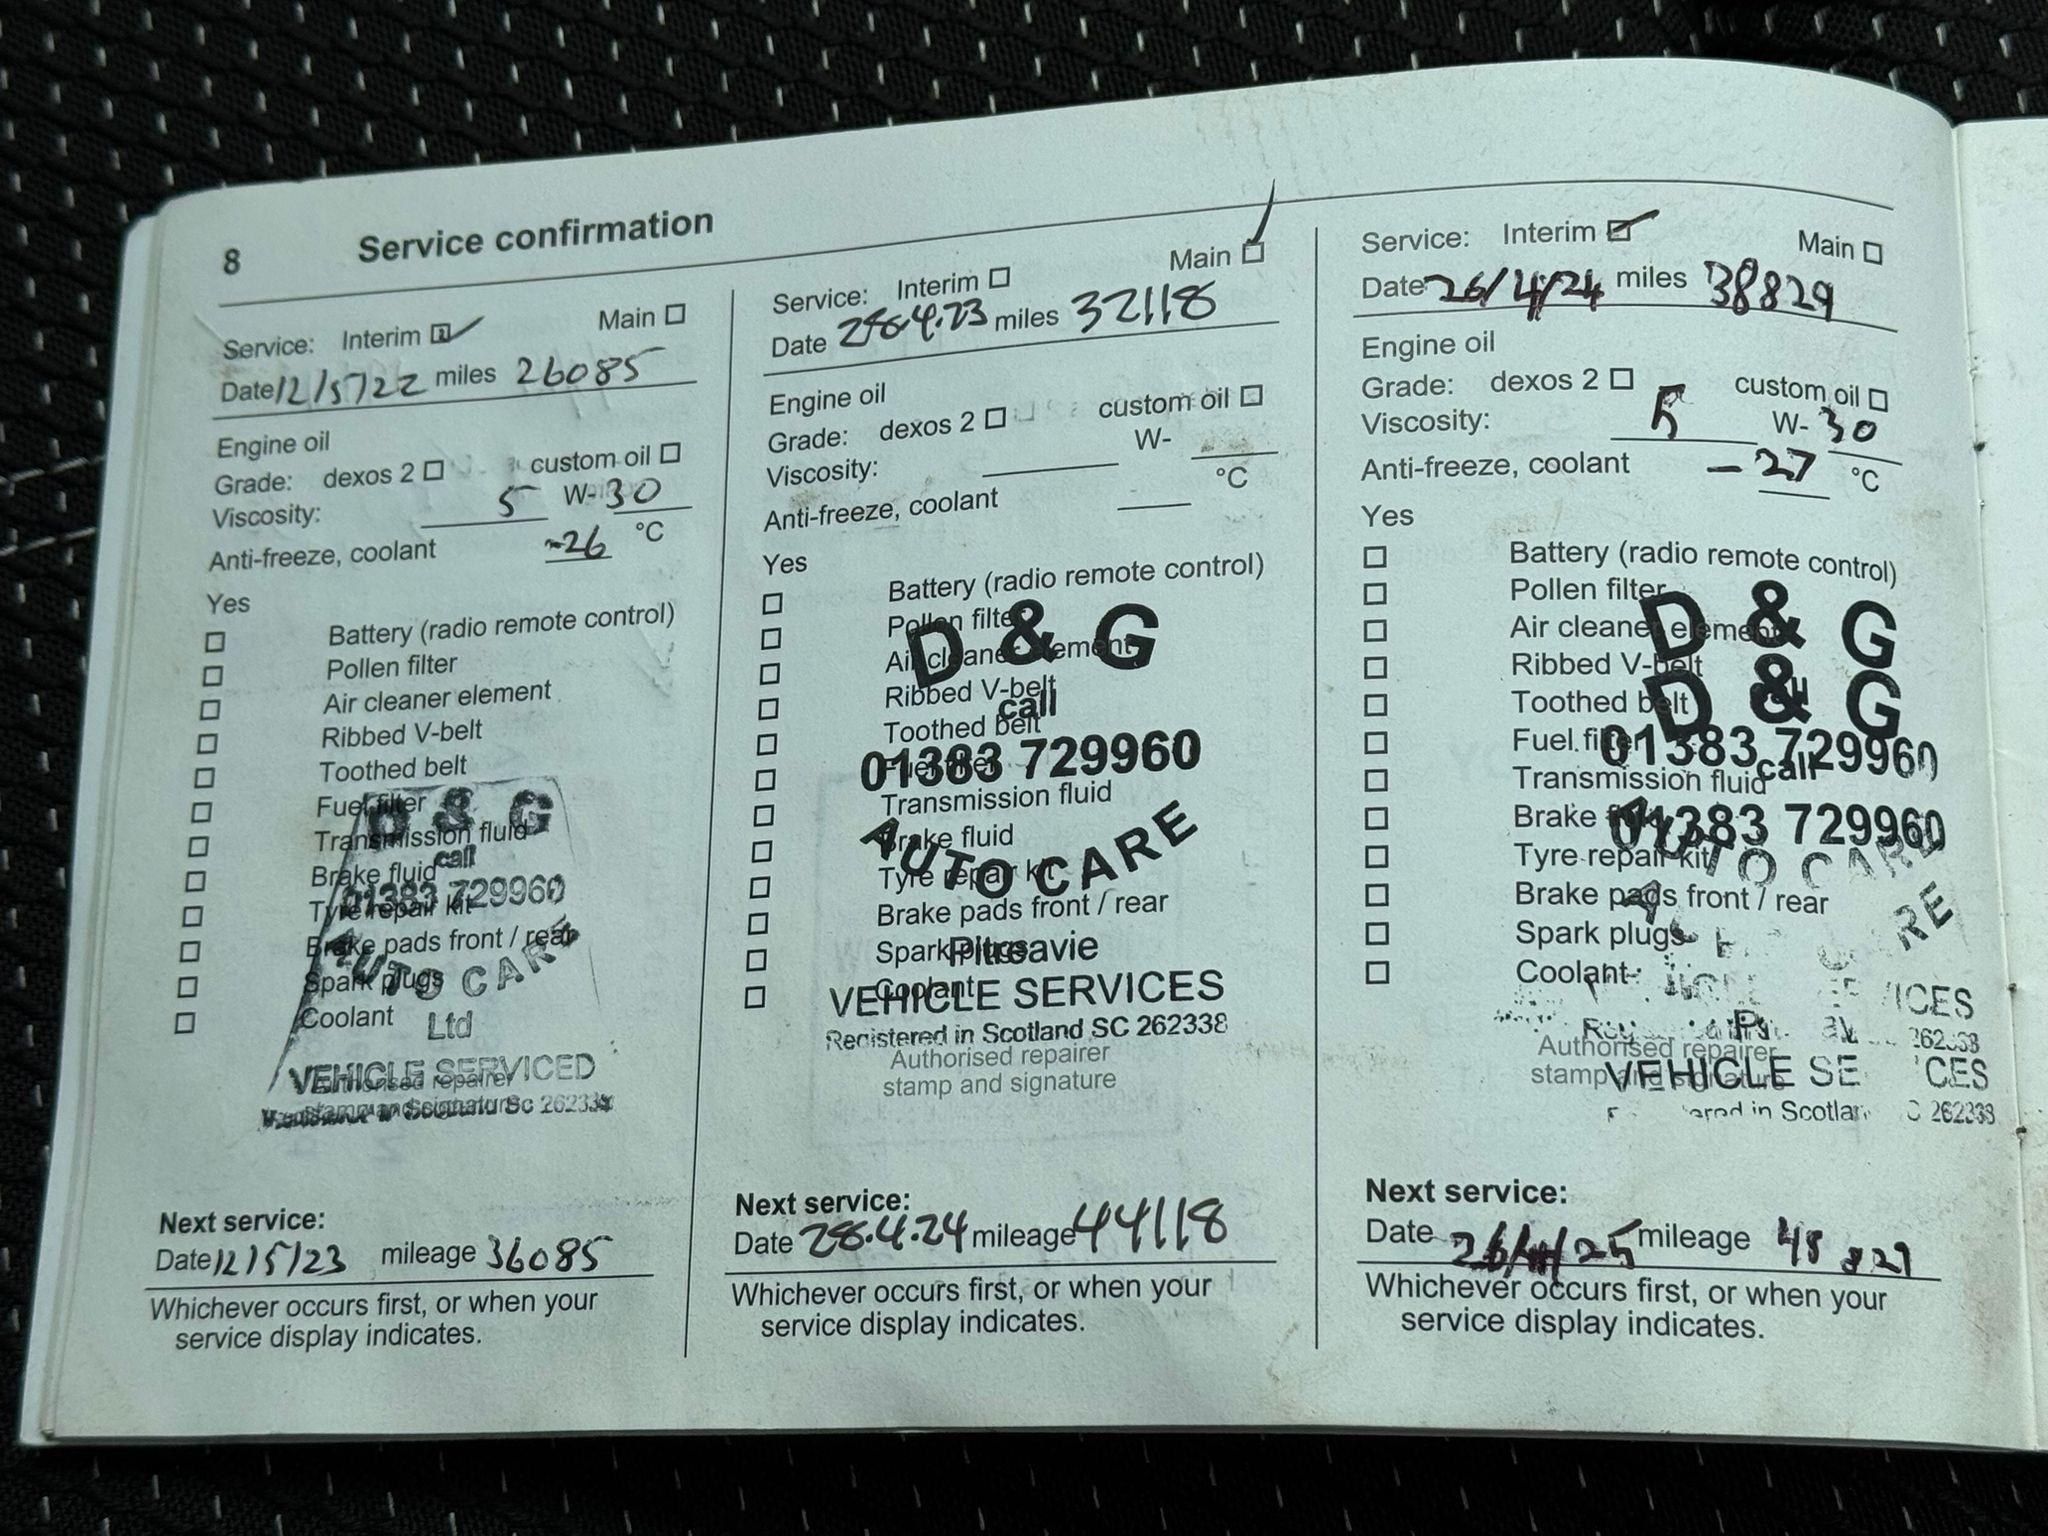 8 Service confirmation
Service: Interim Main
Date 12/5/22 miles 26085
Engine oil
Grade: dexos 2 custom oil
Viscosity: 5 W-30
Anti-freeze, coolant -26 °C
Yes
Battery (radio remote control)
Pollen filter
Air cleaner element
Ribbed V-belt
Toothed belt
Fuel filter
D & G
Transmission fluid
call
Brake fluid
01383 729960
Tyre repair kit
Brake pads front / rear
AUTO CARE
Spark plugs
Coolant
Ltd
VEHICLE SERVICED
Authorised repairer
stamp and signature
SC 262338
Next service:
Date 12/5/23 mileage 36085
Whichever occurs first, or when your
service display indicates.
Service: Interim Main
Date 28.4.23 miles 32118
Engine oil
Grade: dexos 2 custom oil
Viscosity: W-
Anti-freeze, coolant °C
Yes
Battery (radio remote control)
Pollen filter
D & G
Air cleaner element
Ribbed V-belt
call
Toothed belt
01383 729960
Fuel filter
Transmission fluid
Brake fluid
AUTO CARE
Tyre repair kit
Brake pads front / rear
Spark plugs
Pitreavie
Coolant
VEHICLE SERVICES
Registered in Scotland SC 262338
Authorised repairer
stamp and signature
Next service:
Date 28.4.24 mileage 44118
Whichever occurs first, or when your
service display indicates.
Service: Interim Main
Date 26/4/24 miles 38829
Engine oil
Grade: dexos 2 custom oil
Viscosity: 5 W-30
Anti-freeze, coolant -27 °C
Yes
Battery (radio remote control)
Pollen filter
D & G
Air cleaner element
Ribbed V-belt
D & G
Toothed belt
Fuel filter
01383 729960
call
Transmission fluid
Brake fluid
01383 729960
AUTO CARE
Tyre repair kit
Brake pads front / rear
Spark plugs
Coolant
262338
Authorised repairer
stamp and signature
VEHICLE
in 262338
Next service:
Date 26/4/25 mileage
Whichever occurs first, or when your
service display indicates.